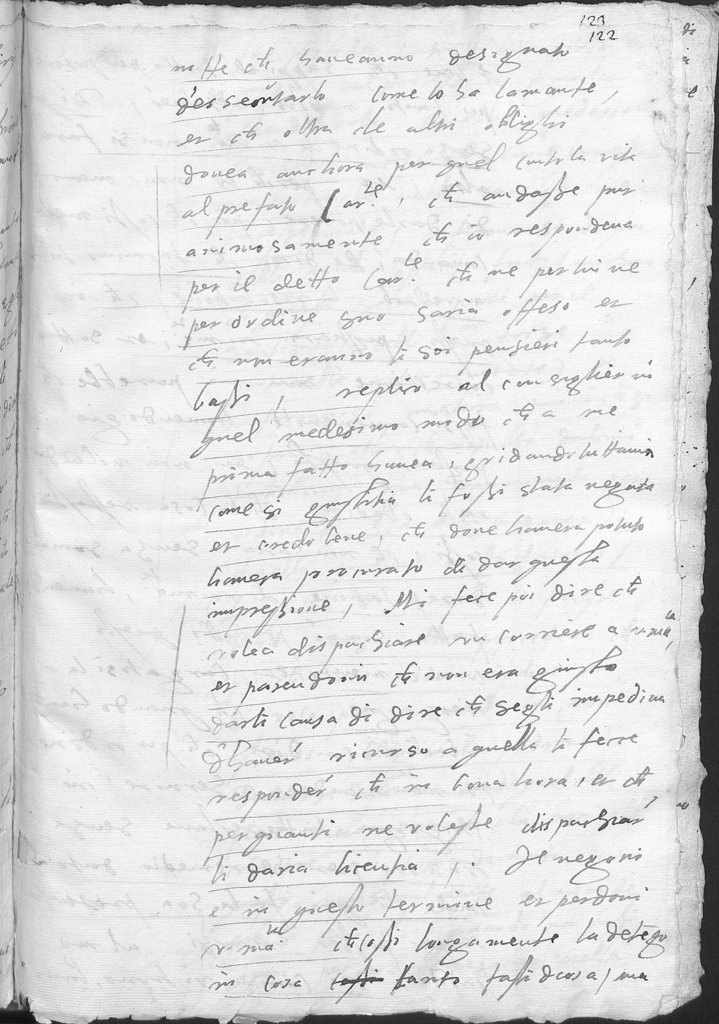 123
122
notte ch haveanno designato
d'essecutarlo come lo ha lamante,
et ch oltra de altri oblighi
dovea anchora per quel cunto la vita
al prefato Car.le, ch andasse pur
animosamente ch io respondeva
per il detto Car.le ch ne per lui ne
per ordine suo saria offeso et
ch non eranno li soi pensieri tanto
bassi, replico al consiglier in
quel medesimo modo ch a me
prima fatto havea, gridando tuttavia
come si giustitia li fossi stata negata
et credo bene, ch dove havera potuto
havera procurato di dar questa
impressione, Mi fece poi dire ch
volea dispachiare un corriere a v. m.ta,
et parendomi ch non era giusto
darli causa di dire ch segli impediva
d'haver ricurso a quella li fecce
responder ch in bona hora, et ch
per quanti ne voleste dispachiar
li daria licentia, Il negotio
e in questo termine et perdoni
v. ma.ta ch cossi longamente la detego
in cosa tanto fastidiosa, ma